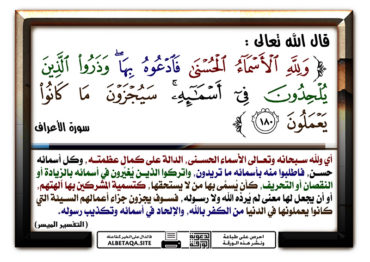 قال الله تعالى :
﴿ وَلِلَّهِ الْأَسْمَاءُ الْحُسْنَىٰ فَادْعُوهُ بِهَا ۖ وَذَرُوا الَّذِينَ
يُلْحِدُونَ فِي أَسْمَائِهِ ۚ سَيُجْزَوْنَ مَا كَانُوا
يَعْمَلُونَ ﴿١٨٠﴾
سورة الأعراف
أي ولله سبحانه وتعالى الأسماء الحسنى، الدالة على كمال عظمته، وكل أسمائه
حسن، فاطلبوا منه بأسمائه ما تريدون، واتركوا الذين يُغيِّرون في أسمائه بالزيادة أو
النقصان أو التحريف، كأن يُسمَّى بها من لا يستحقها، كتسمية المشركين بها آلهتهم،
أو أن يجعل لها معنى لم يُرِدْه الله ولا رسوله، فسوف يجزون جزاء أعمالهم السيئة التي
كانوا يعملونها في الدنيا من الكفر بالله، والإلحاد في أسمائه وتكذيب رسوله.
( التفسير الميسر )
ALBETAQA.SITE
احرص على طباعة
ونشر هذه الورقة